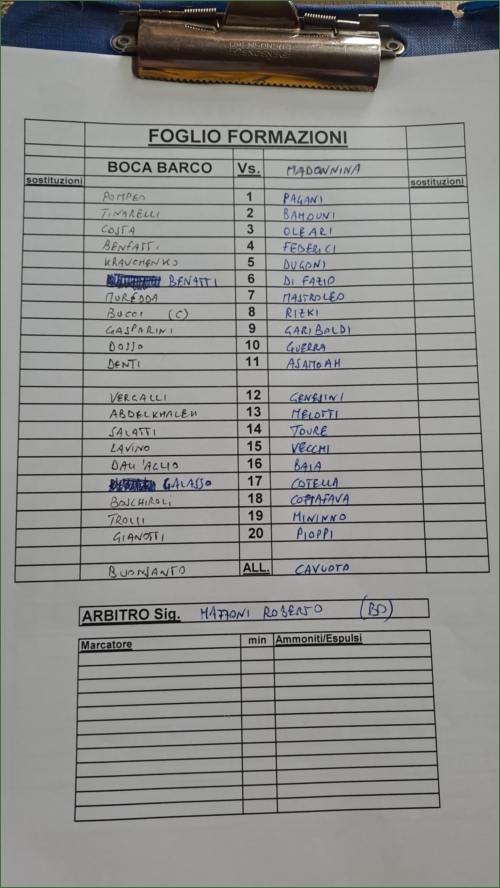 FOGLIO FORMAZIONI
BOCA BARCO Vs. MADONNINA
sostituzioni sostituzioni
POMPEO 1 PAGANI
TINARELLI 2 BAMOUNI
COSTA 3 OLEARI
BENFATTI 4 FEDERICI
KRAUCHENKO 5 DUGONI
BENATTI 6 DI FAZIO
MUREDDA 7 MASTROLEO
BUCCI (C) 8 RIZKI
GASPARINI 9 GARIBOLDI
DOSSO 10 GUERRA
DENTI 11 ASAMOAH
VERCALLI 12 GENESINI
ABDELKHALEK 13 MELOTTI
SALATTI 14 TOURE
LAVINO 15 VECCHI
DALL'AGLIO 16 BAIA
GALASSO 17 COTELLA
BOSCHIROLI 18 COTTAFAVA
TROLLI 19 MININNO
GIANOTTI 20 PIOPPI
BUONSANTO ALL. CAVUOTO
ARBITRO Sig. MAZZONI ROBERTO (BO)
Marcatore min Ammoniti/Espulsi